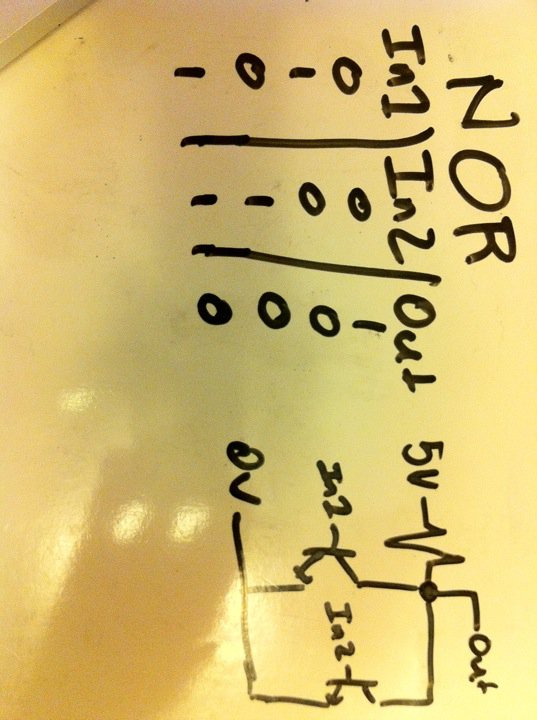 NOR
In1 | In2 | Out
0 | 0 | 1
1 | 0 | 0
0 | 1 | 0
1 | 1 | 0
out
5V
In2
In2
0V